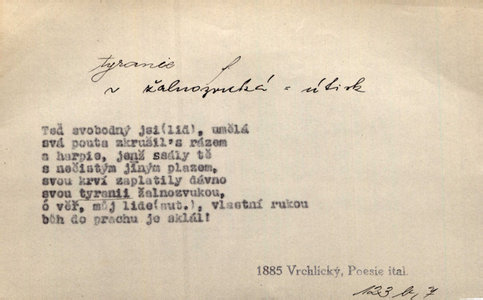 tyranie
v žalnozvuká = útisk
Teď svobodný jsi(lid), umělá
svá pouta zkrušil's rázem
a harpie, jenž ssály tě
s nečistým jiným plazem,
svou krví zaplatily dávno
svou tyranii žalnozvukou,
ó věř, můj lide(aut.), vlastní rukou
bůh do prachu je sklál!
1885 Vrchlický, Poesie ital.
123 b, 7